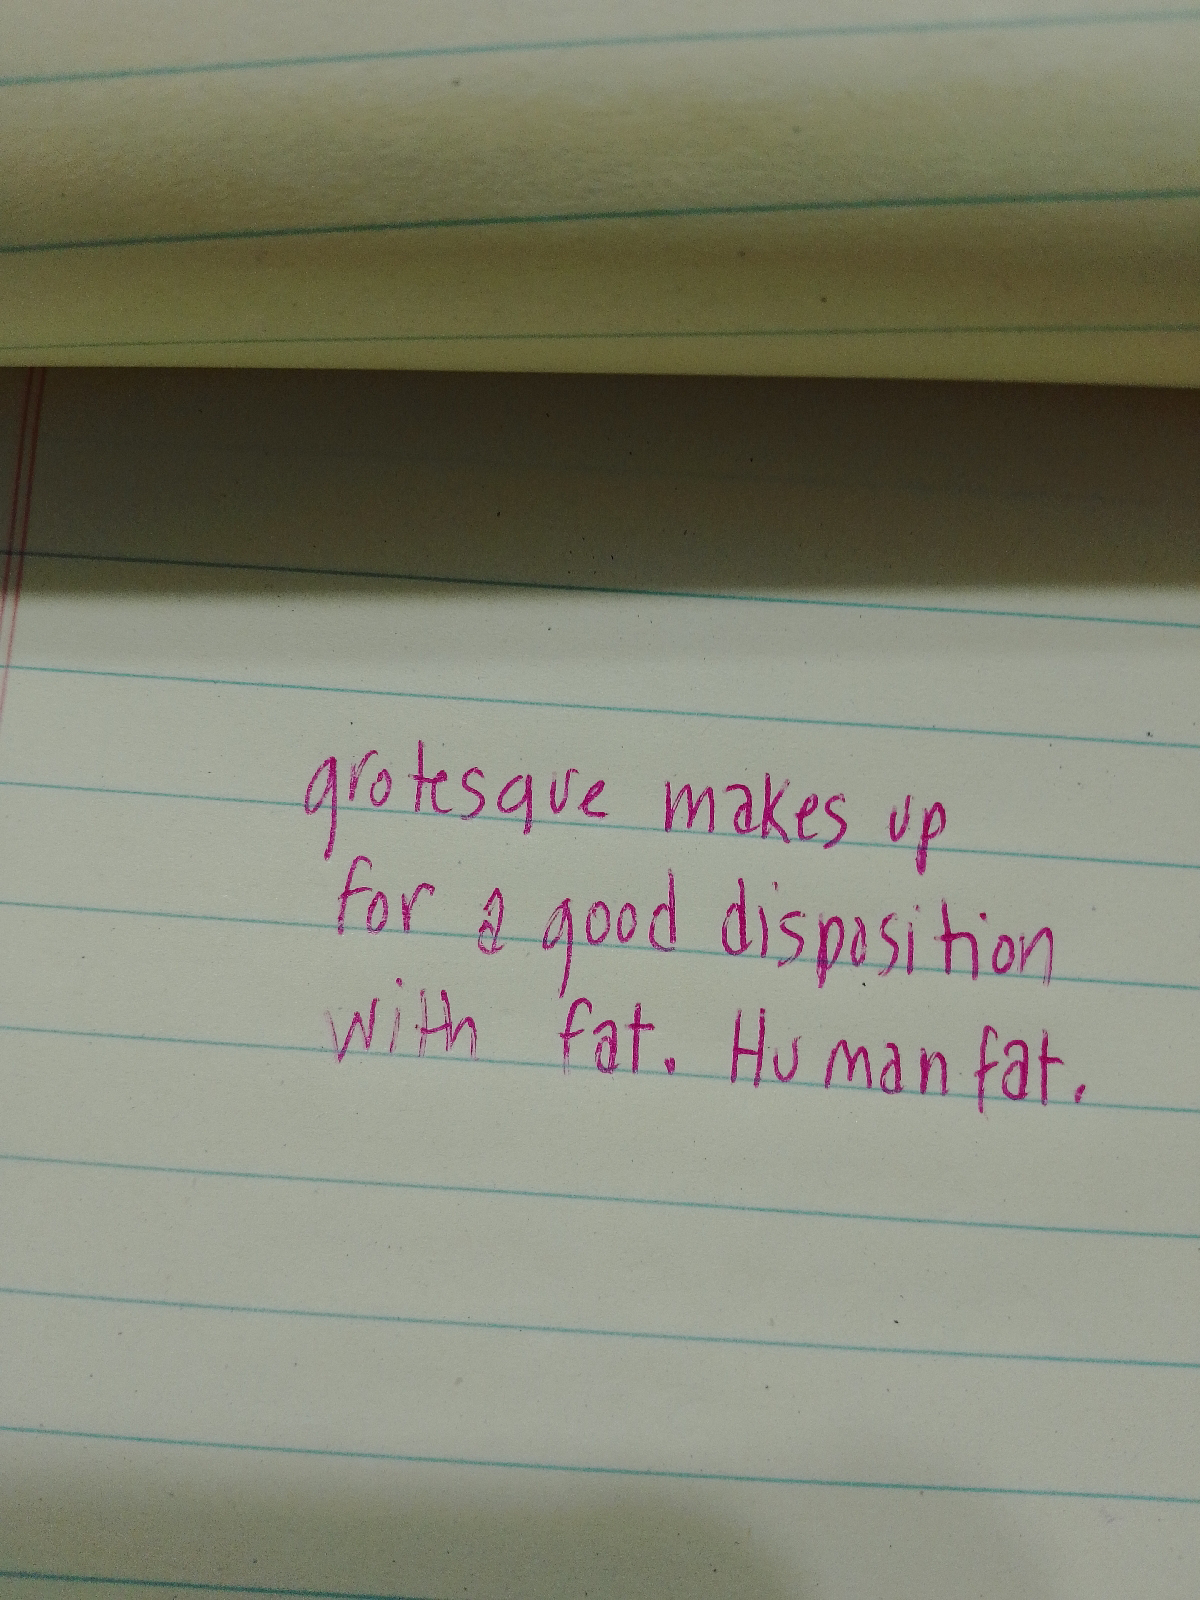 grotesque makes up
for a good disposition
with fat. Human fat.